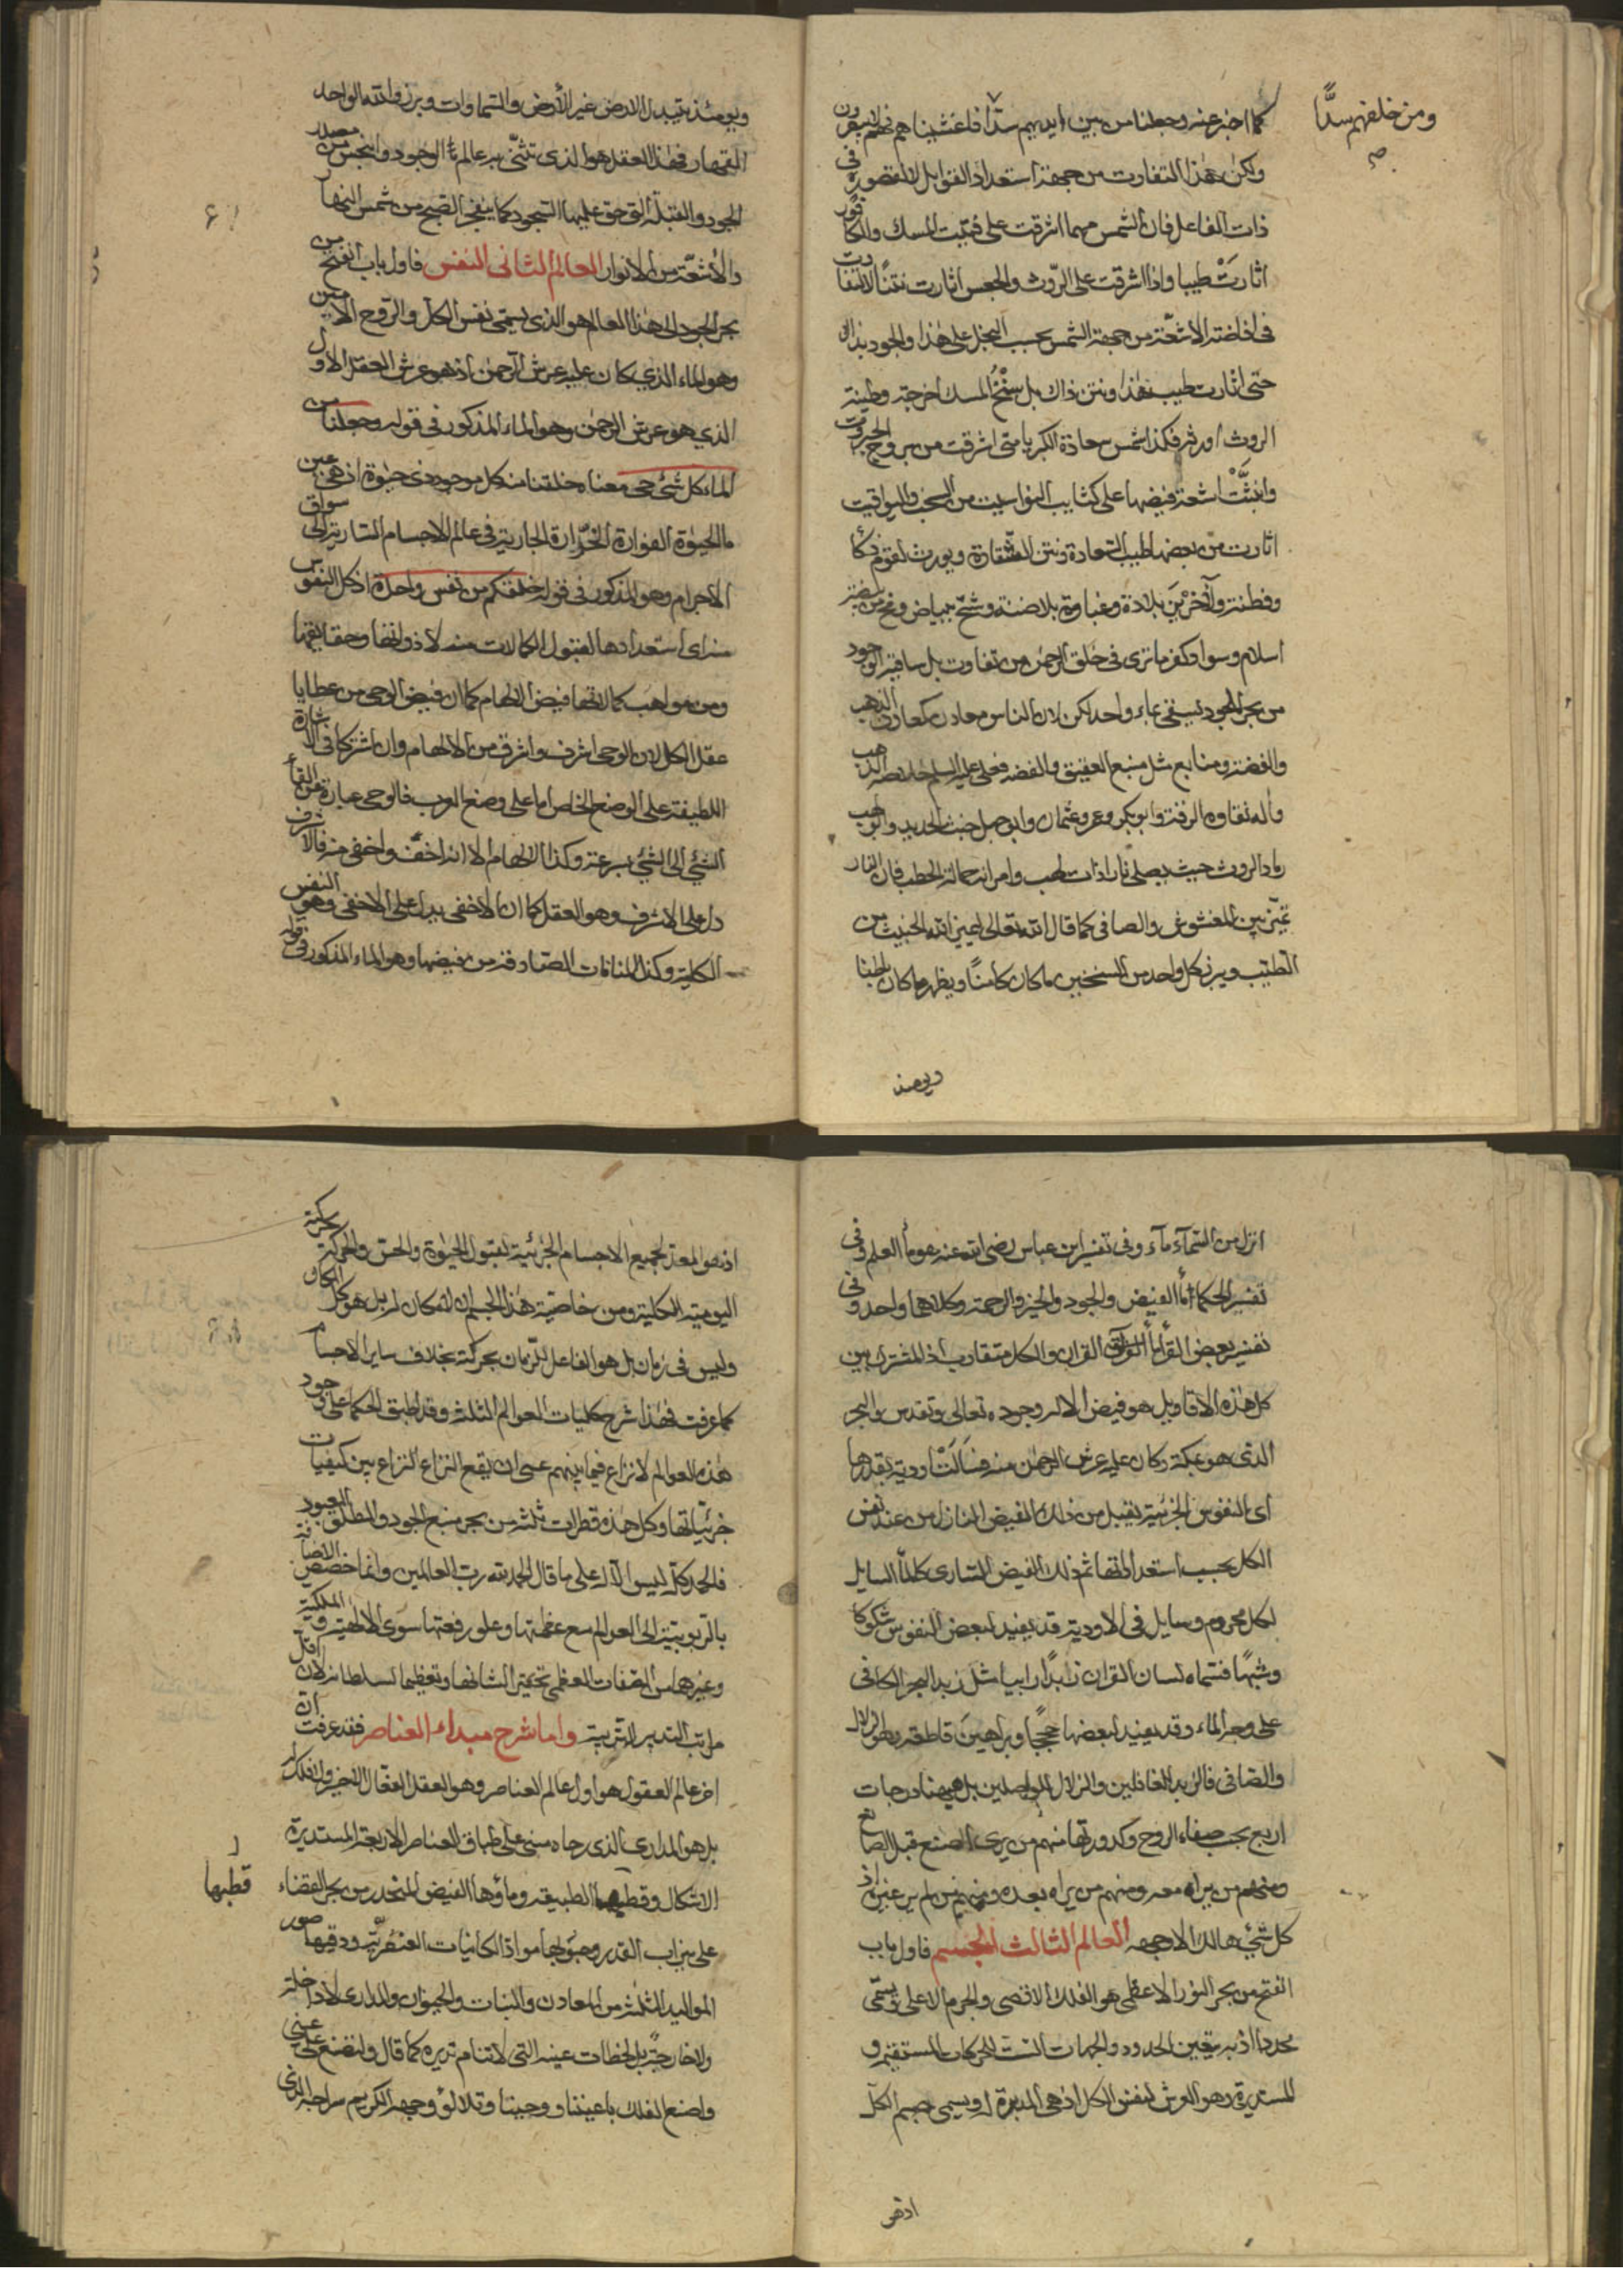 كما اخبر عنه وجعلنا من بين ايديهم سدّا فاغشيناهم فهم لا يبصرون
ومن خلفهم سدًّا
صح
ولكن هذا التفاوت من جهة استعداد القوابل لا لقصور في
ذات الفاعل فان الشمس مهما اشرقت على فتيت المسك والكافور
اثارتْ طيبا واذا اشرقت على الرّوث والجعس اثارت نتنًا لا لتفاوت
في افاضة الاشعّة من جهة الشمس بحسب البخل على هذا والجود بذاك
حتى اثارت طيب هذا ونتن ذاك بل سنخُ المسك اخرجته وطينة
الروث اورثته فكذا شمس سعادة الكبريا متى اشرقت من بروج الجبروت
وانبثَّتْ اشعة فيضها على
اثارت من بعضها طيب السعادة ونتن الشقاوة ويورث لقوم ذكأ
وفطنة ولآخَرين بلادة وغباوة
اسلام وسواد كفر ما ترى في خلق الرحمن من تفاوت بل ساقية الوجود
من بحر الجود تسقى بماء واحد لكن لان الناس معادن كمعادن الذهب
والفضة ومنابع مثل منبع العقيق والفضه فعلى عليه السلم خلاصة الذهب
وآله نقاوة الزفت وابوبكر وعمر وعثمان وابوجهل خبث الحديد وابولهب
رماد الروث حيث يصلى نارا ذات لهب وامراته حمالة الحطب فان النار
تميّز بين المغشوش والصافى كما قال الله تعالى ليميز الله الخبيث من
الطيّب ويبرز كل واحد من السنخين ما كان كامنًا ويظهر ما كان باطنا
ويومئذ
ويومئذ تبدل الارض غير الأرض والسّماوات وبرزوا لله الواحد
القهار فهذا العقل هو الذى به عالم الوجود من مصدر
الجود والقبلة التى حق عليها السجود كما ينفجر الصبح من شمس النهار
والأشعّة من الانوار العالم الثانى النفس فاول باب انفتح من
بحر الجود الى هذا العالم هو الذى يسمّى نفس الكل والرّوح الامين
وهو الماء الذي كان عليه عرش الرحمن اذ هو عرش العقل الاول
الذي هو عرش الرحمن وهو الماء المذكور فى قوله وجعلنا من
الماء كل شئ حى معناه خلقنا منه كل موجود ذى حيوة اذ هى عين
ماء الحيوة الفوارة الخرّارة الجارية فى عالم الاجسام السارية الى سواقى
الاجرام وهو المذكور فى قوله خلقكم من نفس واحدة اذ كل النفوس
منه اى استعدادها لقبول الكمالات منه لا ذواتها وحقايقها
ومن مواهب كمالاتها فيض الالهام كما ان فيض الوحى من عطايا
عقل الكل لان الوحى اشرف واشرق من الالهام وان اشتركا فى الاشارة
اللطيفة على الوضع الخاص اما على وضع العرب فالوحى عبارة عن القاء
الشئ الى الشئ بسرعة وكذا الالهام الا انه اخفّ واخفى منه فالاشرف
دل على الاشرف وهو العقل كما ان الاخفى يدل على الاخفى وهو النفس
الكلية وكذا المنامات الصادقة من فيضها وهو الماء المذكور فى قوله
انزل من السّمآء مآء وفى تفسير ابن عباس رضى الله عنه هو مأ العلم وفى
تفسير الحكما مأ الفيض والجود والخير والرحمة وكلاهما واحد وفى
تفسير بعض القرأ مأ القران والكل متقارب اذ المشترك بين
كل هذه الاقاويل هو فيض الاله وجوده تعالى وتقدس والبحر
الذى هو بمكة وكان عليه عرش الرحمن منه فسَالَتْ اودية بقدرها
اى النفوس الجزئية يقبل من ذلك الفيض النازل من عند نفس
الكل بحسب استعداداتها ثم ذلك الفيض السارى كالمأ السايل
لكل محروم وسايل فى الاودية قد يفيد لبعض النفوس شكوكا
وشبهًا فسماه لسان القران زبدًا رابيا مثل زبد البحر الكافى
على وجه الماء وقد يفيد لبعضها حججًا وبراهينَ قاطعة وهو الزلال
والصافى فالزبد للغافلين والزلال للواصلين بل ههنا درجات
اربع بحسب صفاء الروح وكدورتها منهم من يرى الصنع قبل الصانع
ومنهم من يراه معه ومنهم من يراه بعده ومنهم من لم ير غيره اذ
كل شئ هالك الا وجهه العالم الثالث الجسم فاول باب
انفتح من بحر النور الاعظم هو الفلك الاقصى والجرم الاعلى ويسمّى
محددا اذ به يتعين الحدود والجهات الست للحركات المستقيمة و
المستديرة وهو العرش لنفس الكل اذ هى المدبرة له ويسمى جسم الكل
اذ هو
اذ هو المعدّ لجميع الاجسام الجزئية لقبول الحيوة والحس والحركة
اليومية الكلية ومن خاصية هذا الجسم ان لا مكان له بل هو كل المكان
وليس فى زمان بل هو الفاعل للزمان بحركته بخلاف ساير الاجسام
كما عرفت فهذا شرح كليات العوالم الثلث وقد اطبق الحكما على وجود
هذه العوالم لا نزاع فيما بينهم عسى ان يقع النزاع النزاع بين كيفيات
جزئيّاتها وكل هذه قطرات ثلثة من بحر منبع الجود والمطلق المعبود
فالحمد كله ليس الا له على ما قال الحمد لله رب العالمين وانما خصص الاضافة
بالربوبية الى العوالم مع عظمتها وعلو رفعتها سوى الالهية والملكية
وغيرهما من الصفات العظمى تحقيرا لشانها وتعظيما لسلطانه لان اقل
مراتب التدبير التربية واما شرح مبداء العناصر فقد عرفت ان
اخر عالم العقول هو اول عالم العناصر وهو العقل الفعّال الاخير والفلك
بل هو المدار الذى رحاه مبنى على طباق العناصر الاربعة المستديرة
الاشكال وقطبها الطبيعة وماؤها الفيض المنحدر من بحر القضاء
قطبها
على ميزاب القدر وحبوبها مواد الكاينات العنصريّة ودقيقها صور
المواليد الثلثة من المعادن والنبات والحيوان والمدار لا داخلة
ولا خارجة بل لحظات عينه التى لا تنام تديره كما قال ولتصنع على عينى
واصنع الفلك باعيننا ووحينا وتلالؤ وجهه الكريم سراجه الذى